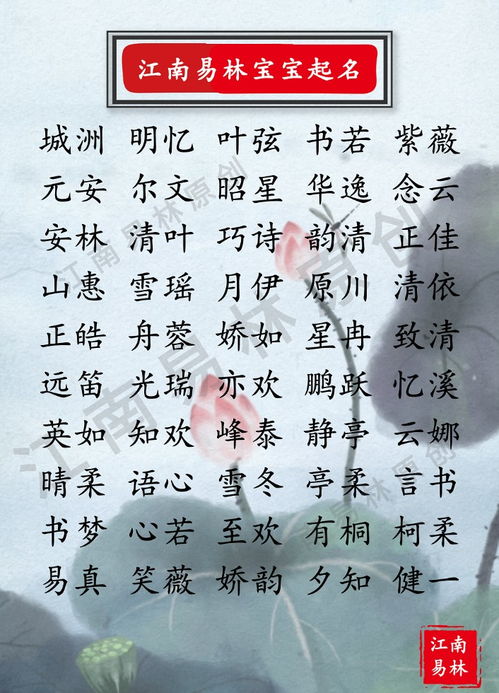 江南易林宝宝起名
城洲 明忆 叶弦 书若 紫薇
元安 尔文 昭星 华逸 念云
安林 清叶 巧诗 韵清 正佳
山惠 雪瑶 月伊 原川 清依
正皓 舟蓉 娇如 星冉 致清
远笛 光瑞 亦欢 鹏跃 忆溪
英如 知欢 峰泰 静亭 云娜
晴柔 语心 雪冬 亭柔 言书
书梦 心若 至欢 有桐 柯柔
易真 笑薇 娇韵 夕知 健一
江南易林原创
江南易林原创
易林原创
江南
易林